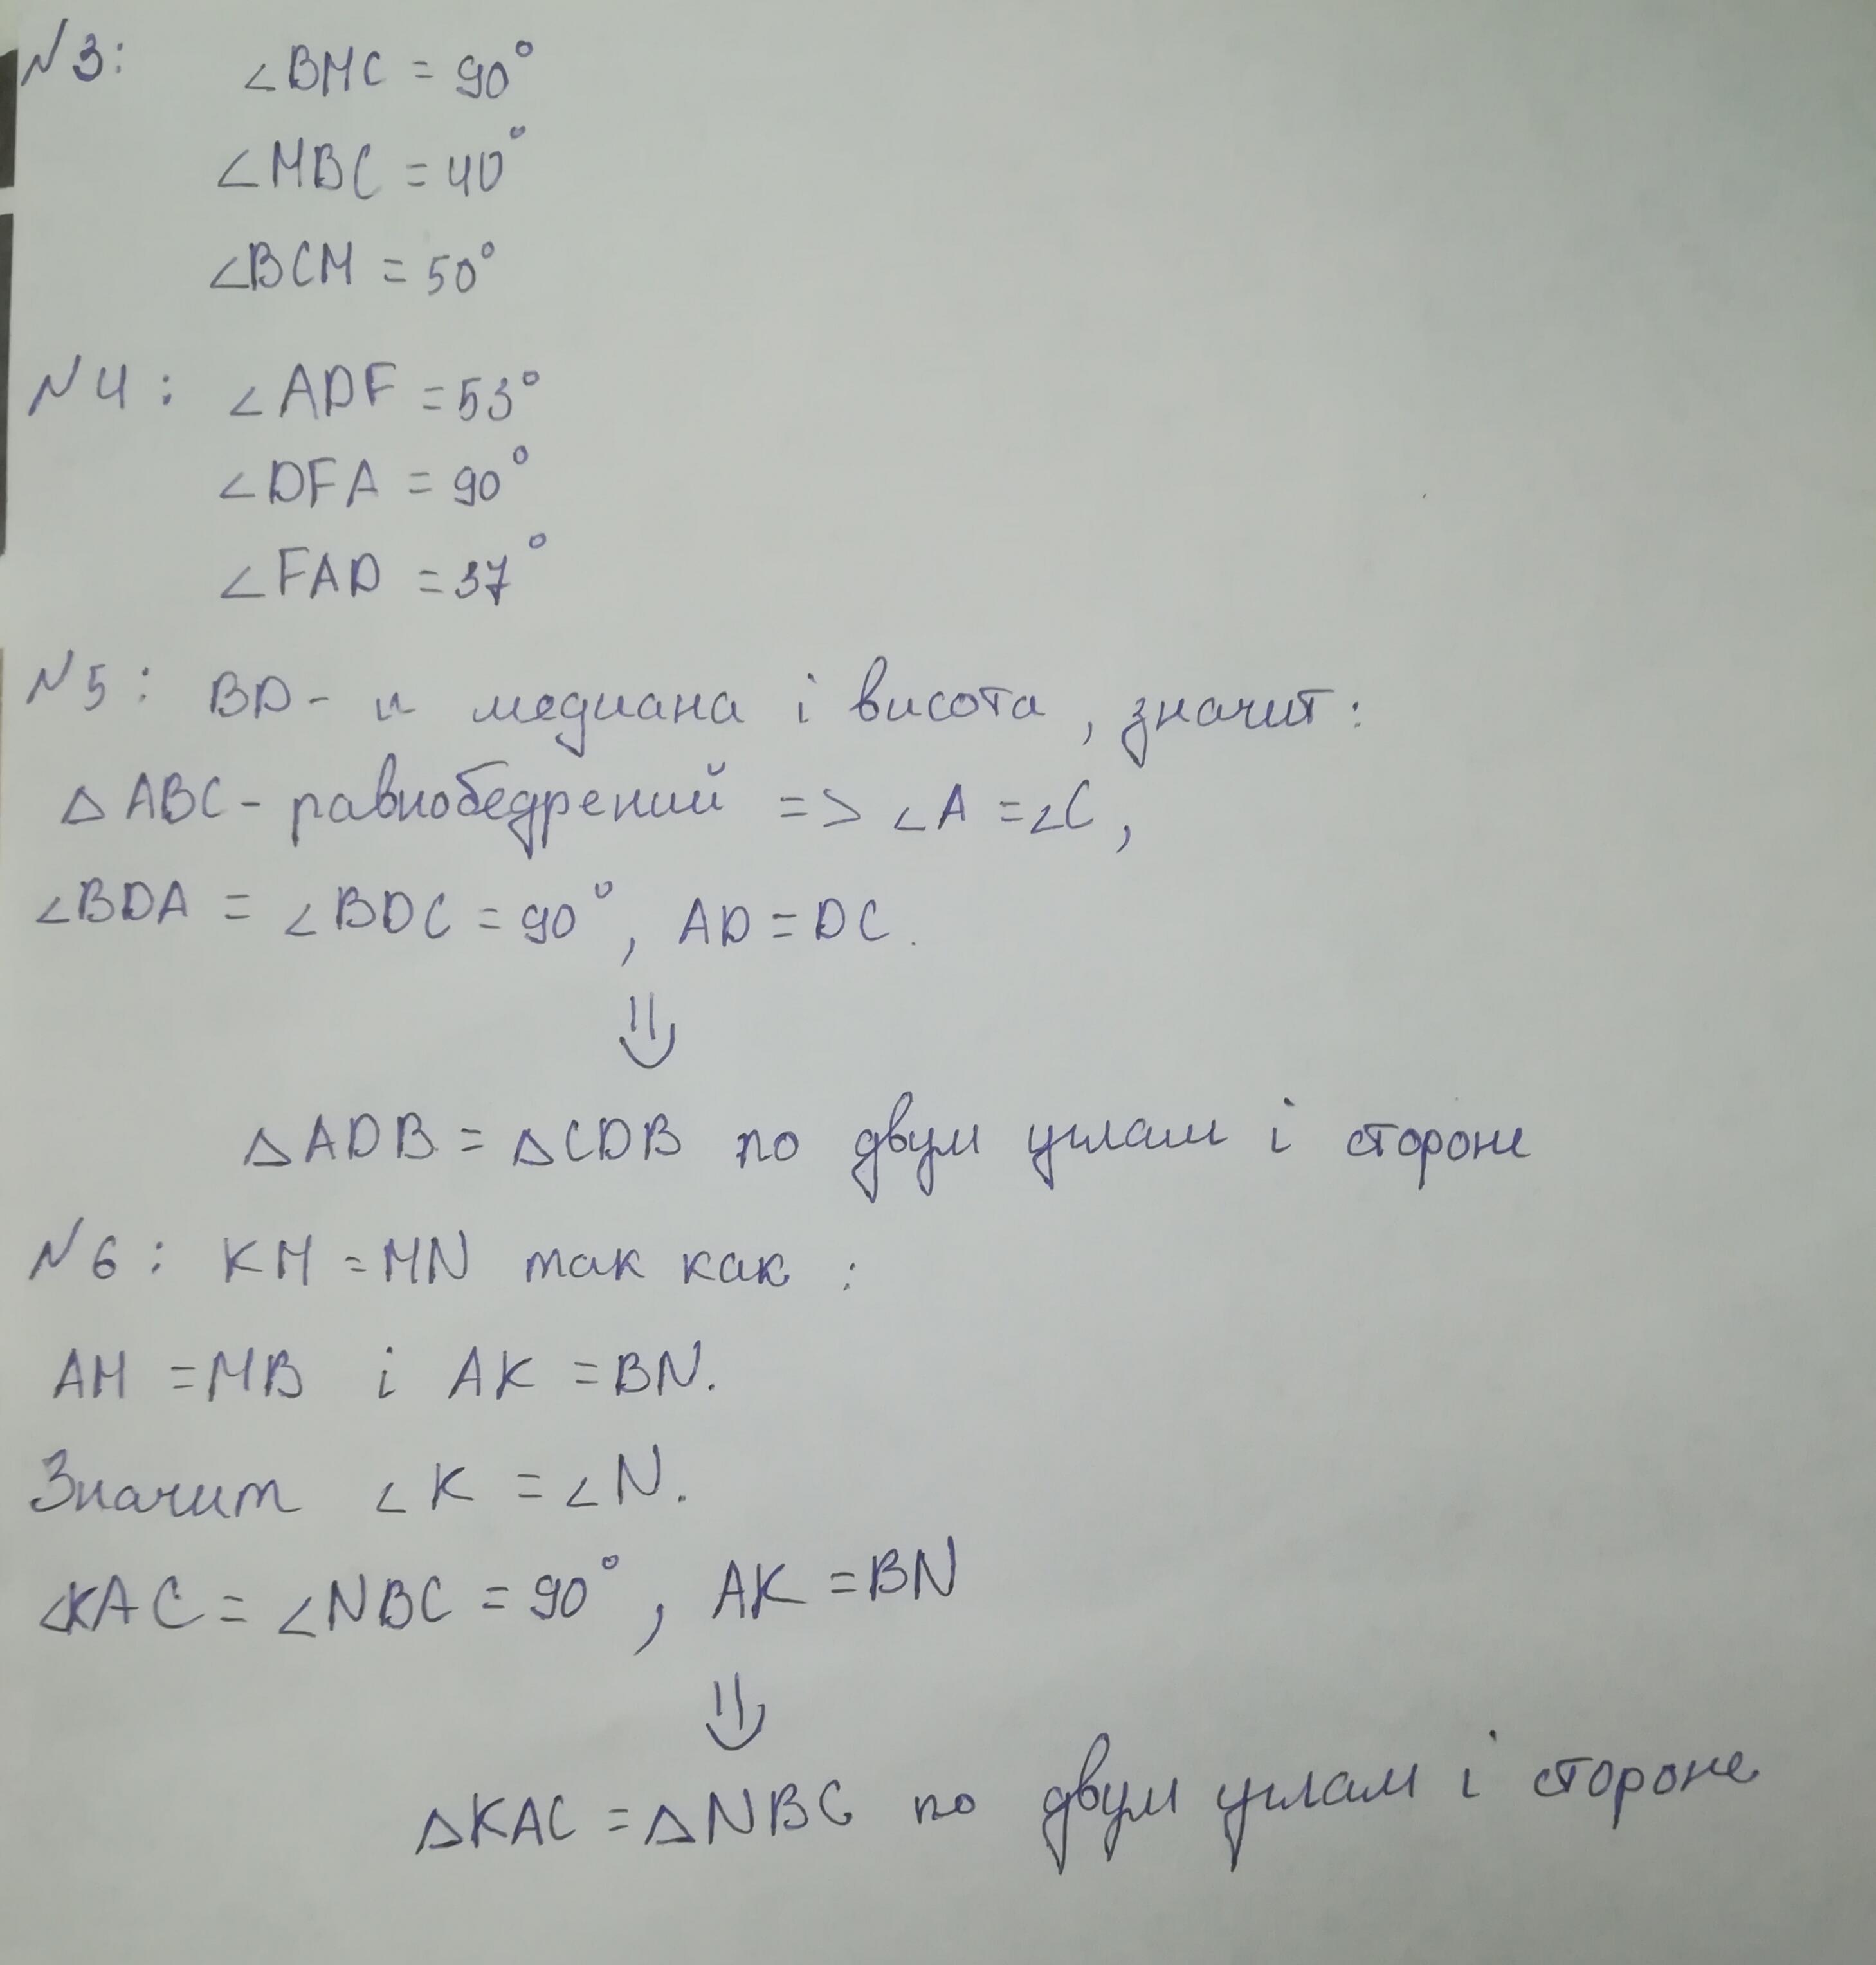 N3: ∠BMC = 90°
∠MBC = 40°
∠BCM = 50°
N4: ∠ADF = 53°
∠DFA = 90°
∠FAD = 37°
N5: BD - и медиана і висота, значит:
△ABC - равнобедрений => ∠A = ∠C,
∠BDA = ∠BDC = 90°, AD = DC.
⇓
△ADB = △CDB по двум углам і стороне
N6: KM = MN так как:
AM = MB і AK = BN.
Значит ∠K = ∠N.
∠KAC = ∠NBC = 90°, AK = BN
⇓
△KAC = △NBC по двум углам і стороне